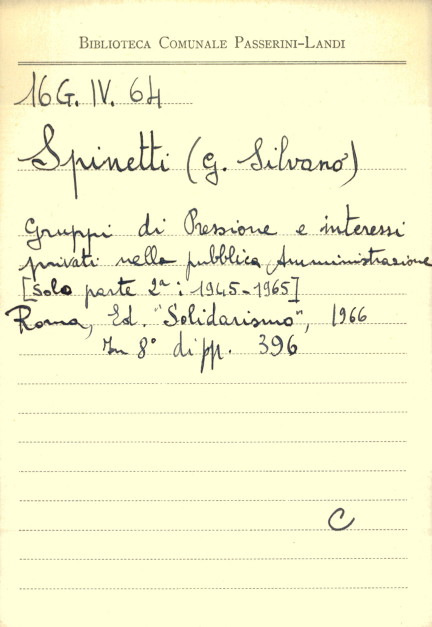 BIBLIOTECA COMUNALE PASSERINI-LANDI
16 G. IV. 64
Spinetti (G. Silvano)
Gruppi di Pressione e interessi
privati nella pubblica Amministrazione
[solo parte 2ª: 1945-1965]
Roma, Ed. "Solidarismo", 1966
In 8° di pp. 396
C